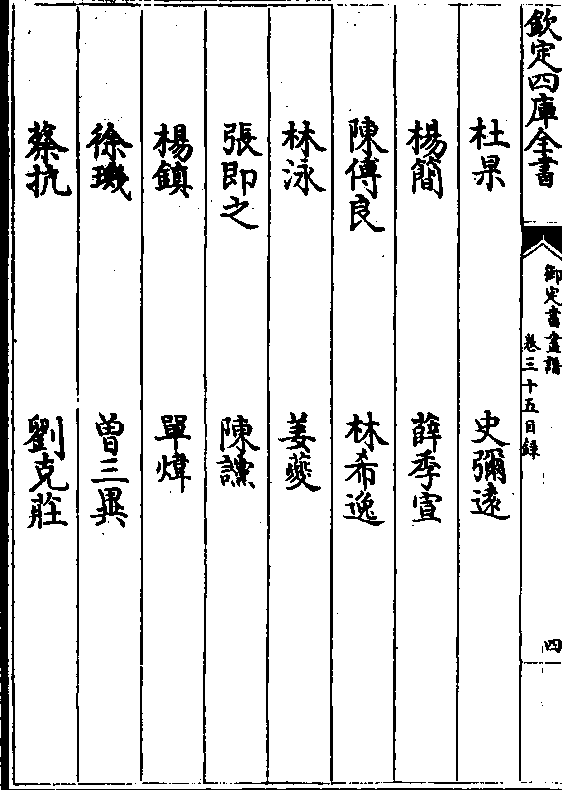 欽定四庫全書
御定書畫譜
卷三十五目録
四
杜杲 史彌遠
楊簡 薛季宣
陳傅良 林希逸
林泳 姜夔
張即之 陳讜
楊鎮 單煒
徐璣 曾三異
蔡抗 劉克莊